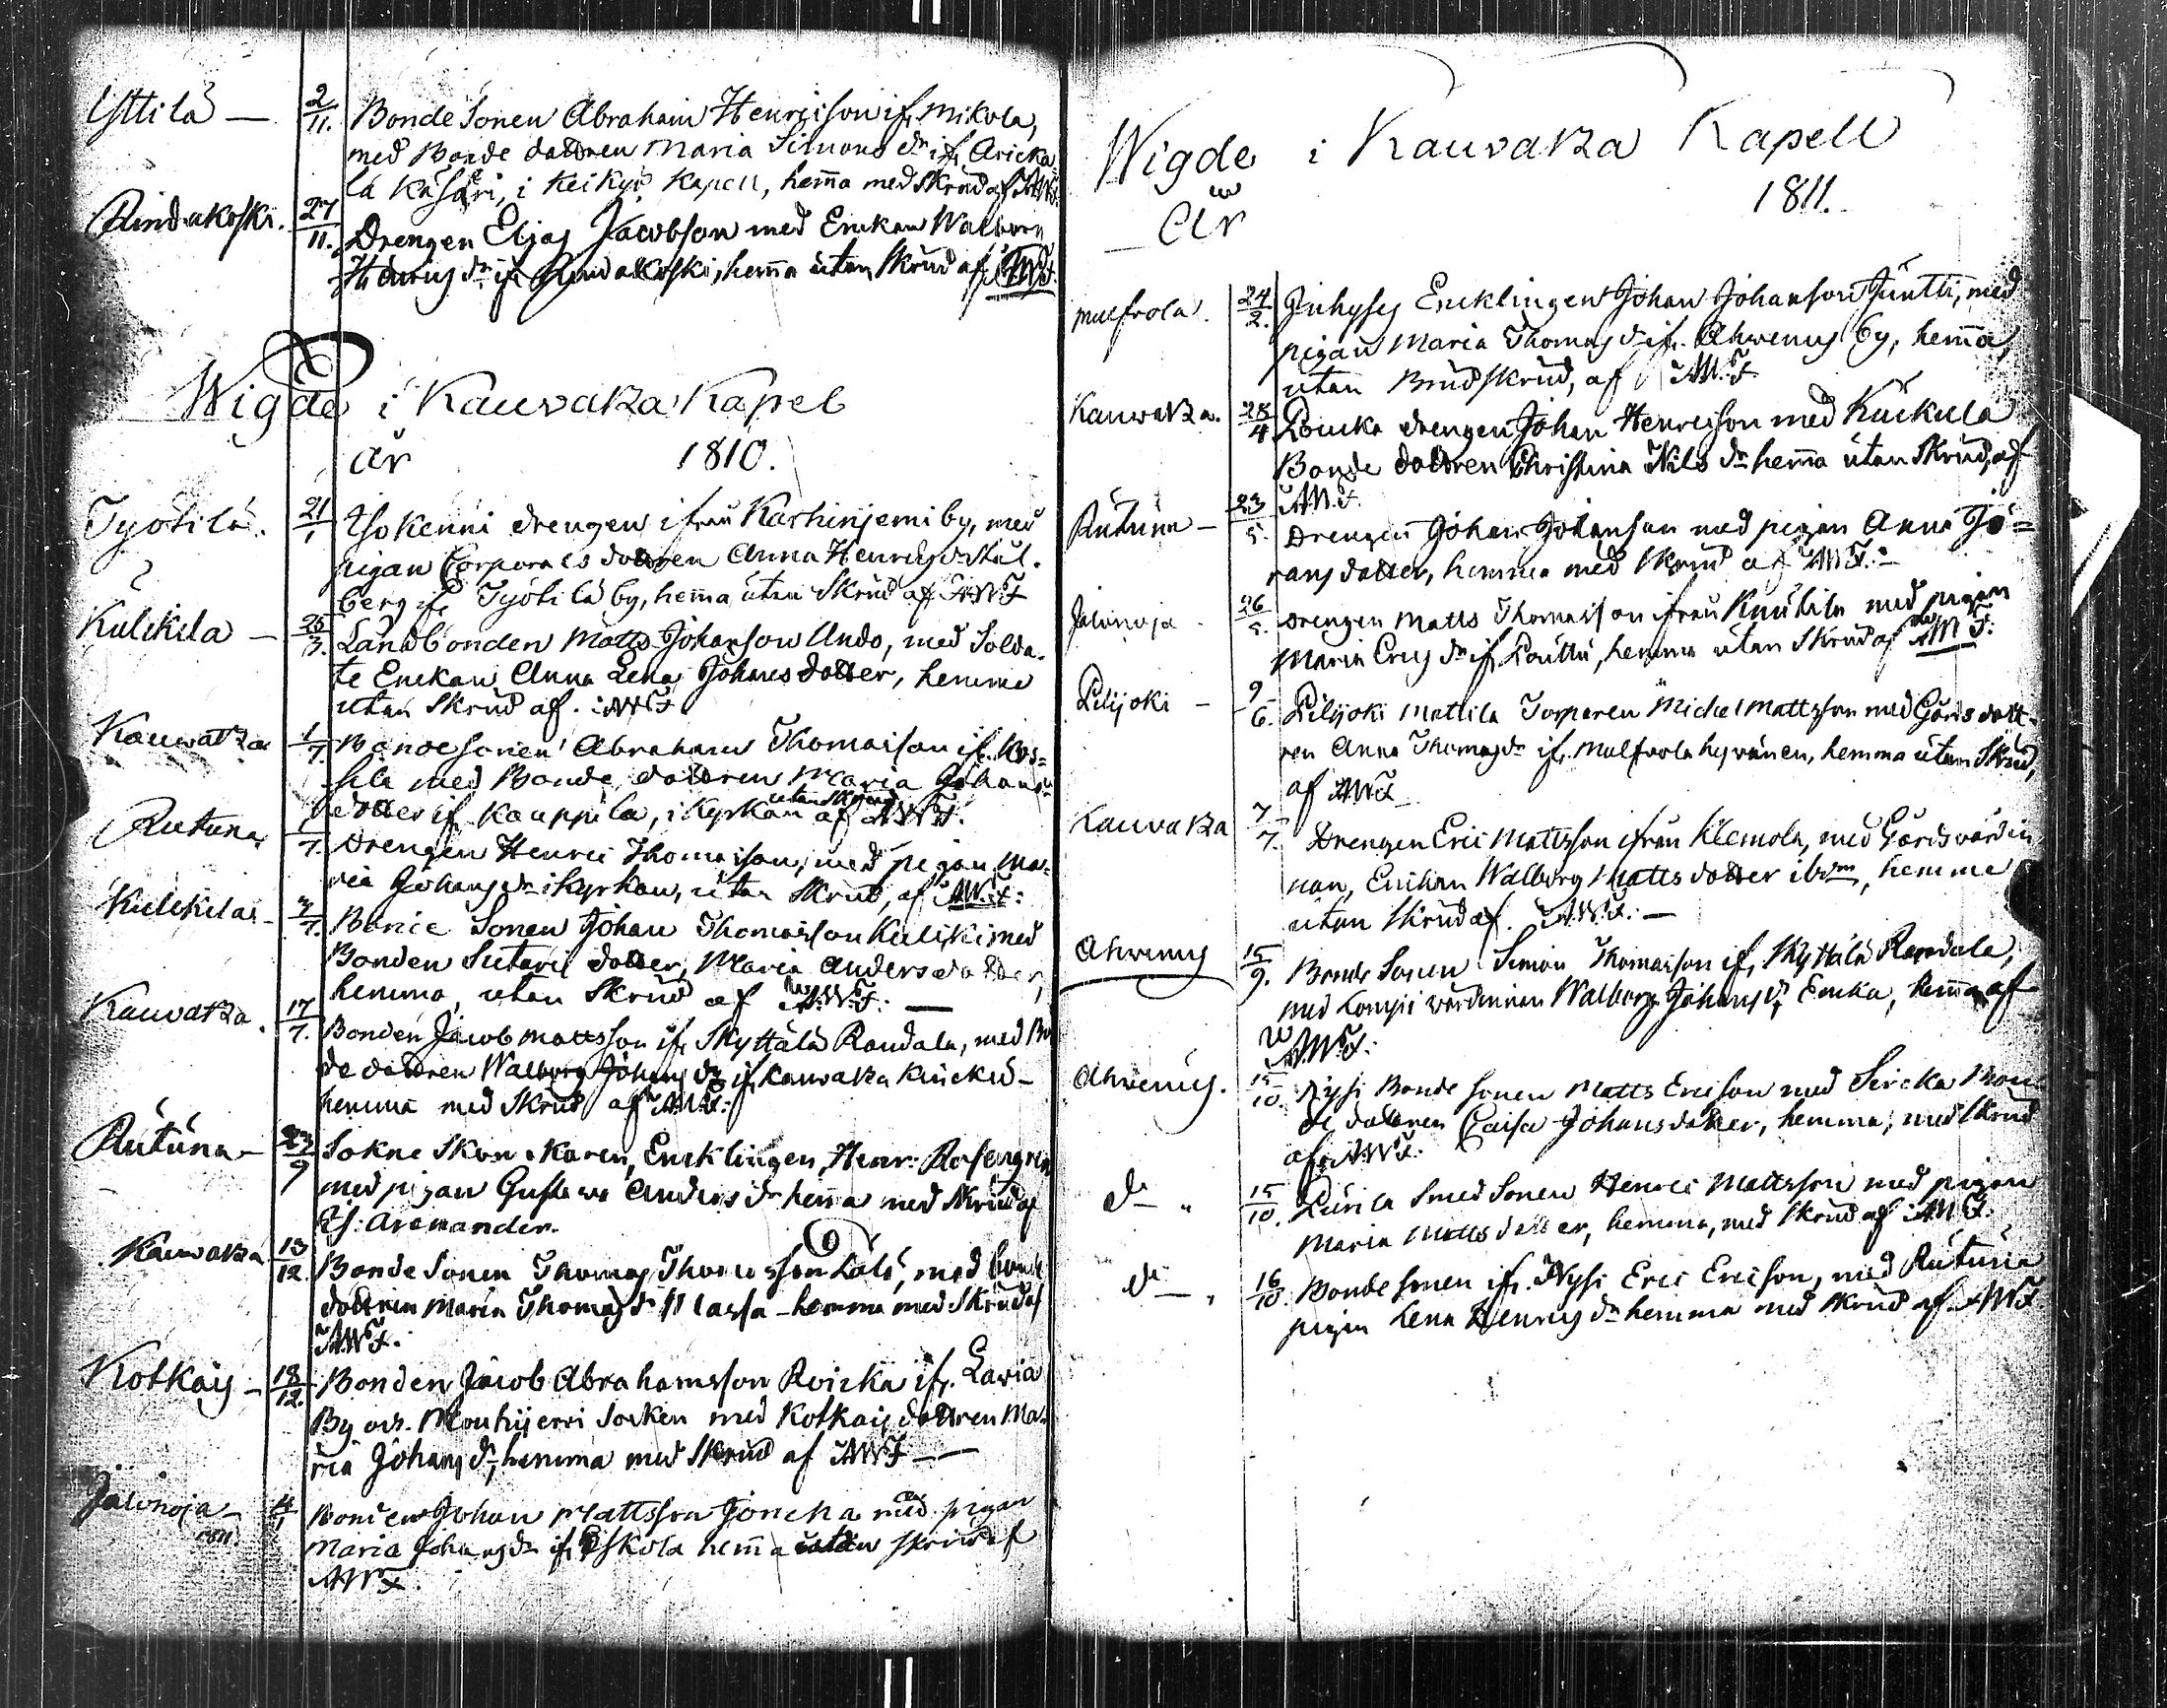 Yttilä — 2/11. Bonde Sonen Abraham Henricsson ifr. Mikola,
med Bonde dottren Maria Simons dr ifr. Aricka
la Käsäri, i Keikyö Kapell, hema med Skrud af
Rindakoski. 27/11. Drengen Eljas Jacobson med Enckan Walborg
Henrics dr ifr. Rindakoski, hema utan Skrud af
Wigde i Kauvatza Kapel
år 1810.
Työtilä. 21/1 Isokenni drengen ifrån Karhinjemi by, med
pigan Corporals dottren Anna Henrics dr Stål.
berg ifr. Työtilä by, hema utan Skrud af AWF
Kulikila — 25/3. Landbonden Matts Johansson Undo, med Solda.
te Enckan Anna Lena Johans dotter, hemma
utan Skrud af. AWF
Kauvatza 1/7. Bondesonen Abraham Thomasson ifr. Kos=
kila med Bonde dottren Maria Johans
dotter ifr. Kauppila, i Kyrkan utan Skrud af AWF.
Rutuna 1/7. Drengen Henric Thomasson, med pigan Ma:
ria Johans dr i Kyrkan, utan Skrud, af AWF:
Kulikila — 7/7. Bonde Sonen Johan Thomasson Kuliki med
Bonden Sutaris dotter, Maria Anders dotter,
hemma, utan Skrud af AWF: —
Kauvatza. 17/7. Bonden Jacob Mattsson ifr. Skyttälä Randala, med Bon
de dottren Walborg Johans dr ifr. Kauvatza Kuicku —
hemma med Skrud af AWF:
Rutuna — 23/9 Sokne Skomakaren, Encklingen, Henr: Rosengren
med pigan Gustava Anders dr hema med Skrud af
Es: Aremander.
Kauvatza 13/12. Bonde Sonen Thomas Thomasson Läls, med bonde
dottren Maria Thomas dr Massa — hemma med Skrud af
AWF.
Kotkais — 18/12. Bonden Jacob Abrahamsson Roicka ifr. Lavia
By och Mouhijervi Socken med Kotkais dottren Ma.
ria Johans dr, hemma med Skrud af AWF —
Jalonoja — 1811. Bonden Johan Mattsson Joncka med pigan
Maria Johans dr ifr. Eskola hema utan skrud af
AWF.
Wigde i Kauvatza Kapell
År 1811.
Malfvola. 24/2. Inhyses Encklingen Johan Johansson Juntti, med
pigan Maria Thomas dr ifr. Ahvenus by, hema,
utan Brudskrud, af AWF.
Kauvatza. 28/4 Loucka drengen Johan Henricsson med Kuickula
Bonde dottren Christina Nils dr hema utan Skrud, af
AWF.
Rutuna — 23/5. Drengen Johan Johansson med pigan Anna Jö=
rans dotter, hemma med Skrud af AWF. —
Jalonoja. 26/5. Drengen Matts Thomasson ifrån Knutila med pigan
Maria Erics dr ifr. Louttu, hemma utan Skrud af AWF:
Pilijoki — 9/6. Pilijoki Mattila Torparen Michel Mattsson med Gårds dott
ren Anna Thomas dr ifr. Malfvola hyvänen, hemma utan Skrud,
af AWF
Kauvatza 7/7. Drengen Eric Mattsson ifrån Klemola, med Gårdsvärdin
nan, Enckan Walborg Matts dotter ibdm, hemma
utan Skrud af. AWF. —
Ahvenus 15/9. Bonde Sonen Simon Thomasson ifr. Skyttälä Randala,
med Lompis värdinnan Walborg Johans dr, Encka, hema af
AWF:
Ahvenus. 15/10. Nysi Bonde sonen Matts Ericson med Sircka Bon
de dottren Caisa Johans dotter, hemma, med skrud
af AWF.
do " 15/10. Lurila Smed Sonen Henric Mattsson med pigan
Maria Matts dotter, hemma, med Skrud af AWF.
do — " 16/10. Bonde sonen ifr. Nysi Eric Ericson, med Rutuna
pigan Lena Henrics dr hemma med skrud af AWF